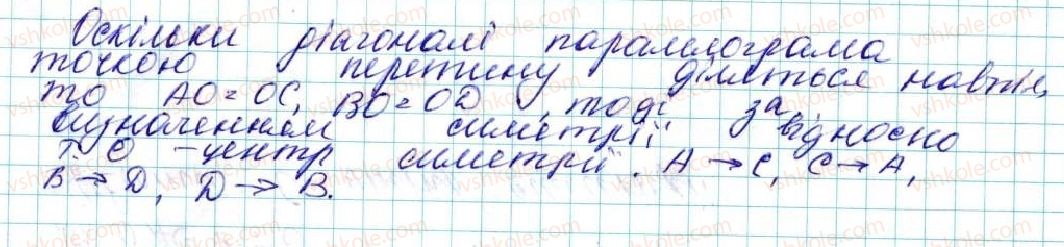 Оскільки діагоналі паралелограма
точкою перетину діляться навпіл,
то AO = OC, BO = OD, тоді за
визначенням симетрії відносно
т. O – центр симетрії. A → C, C → A,
B → D, D → B.